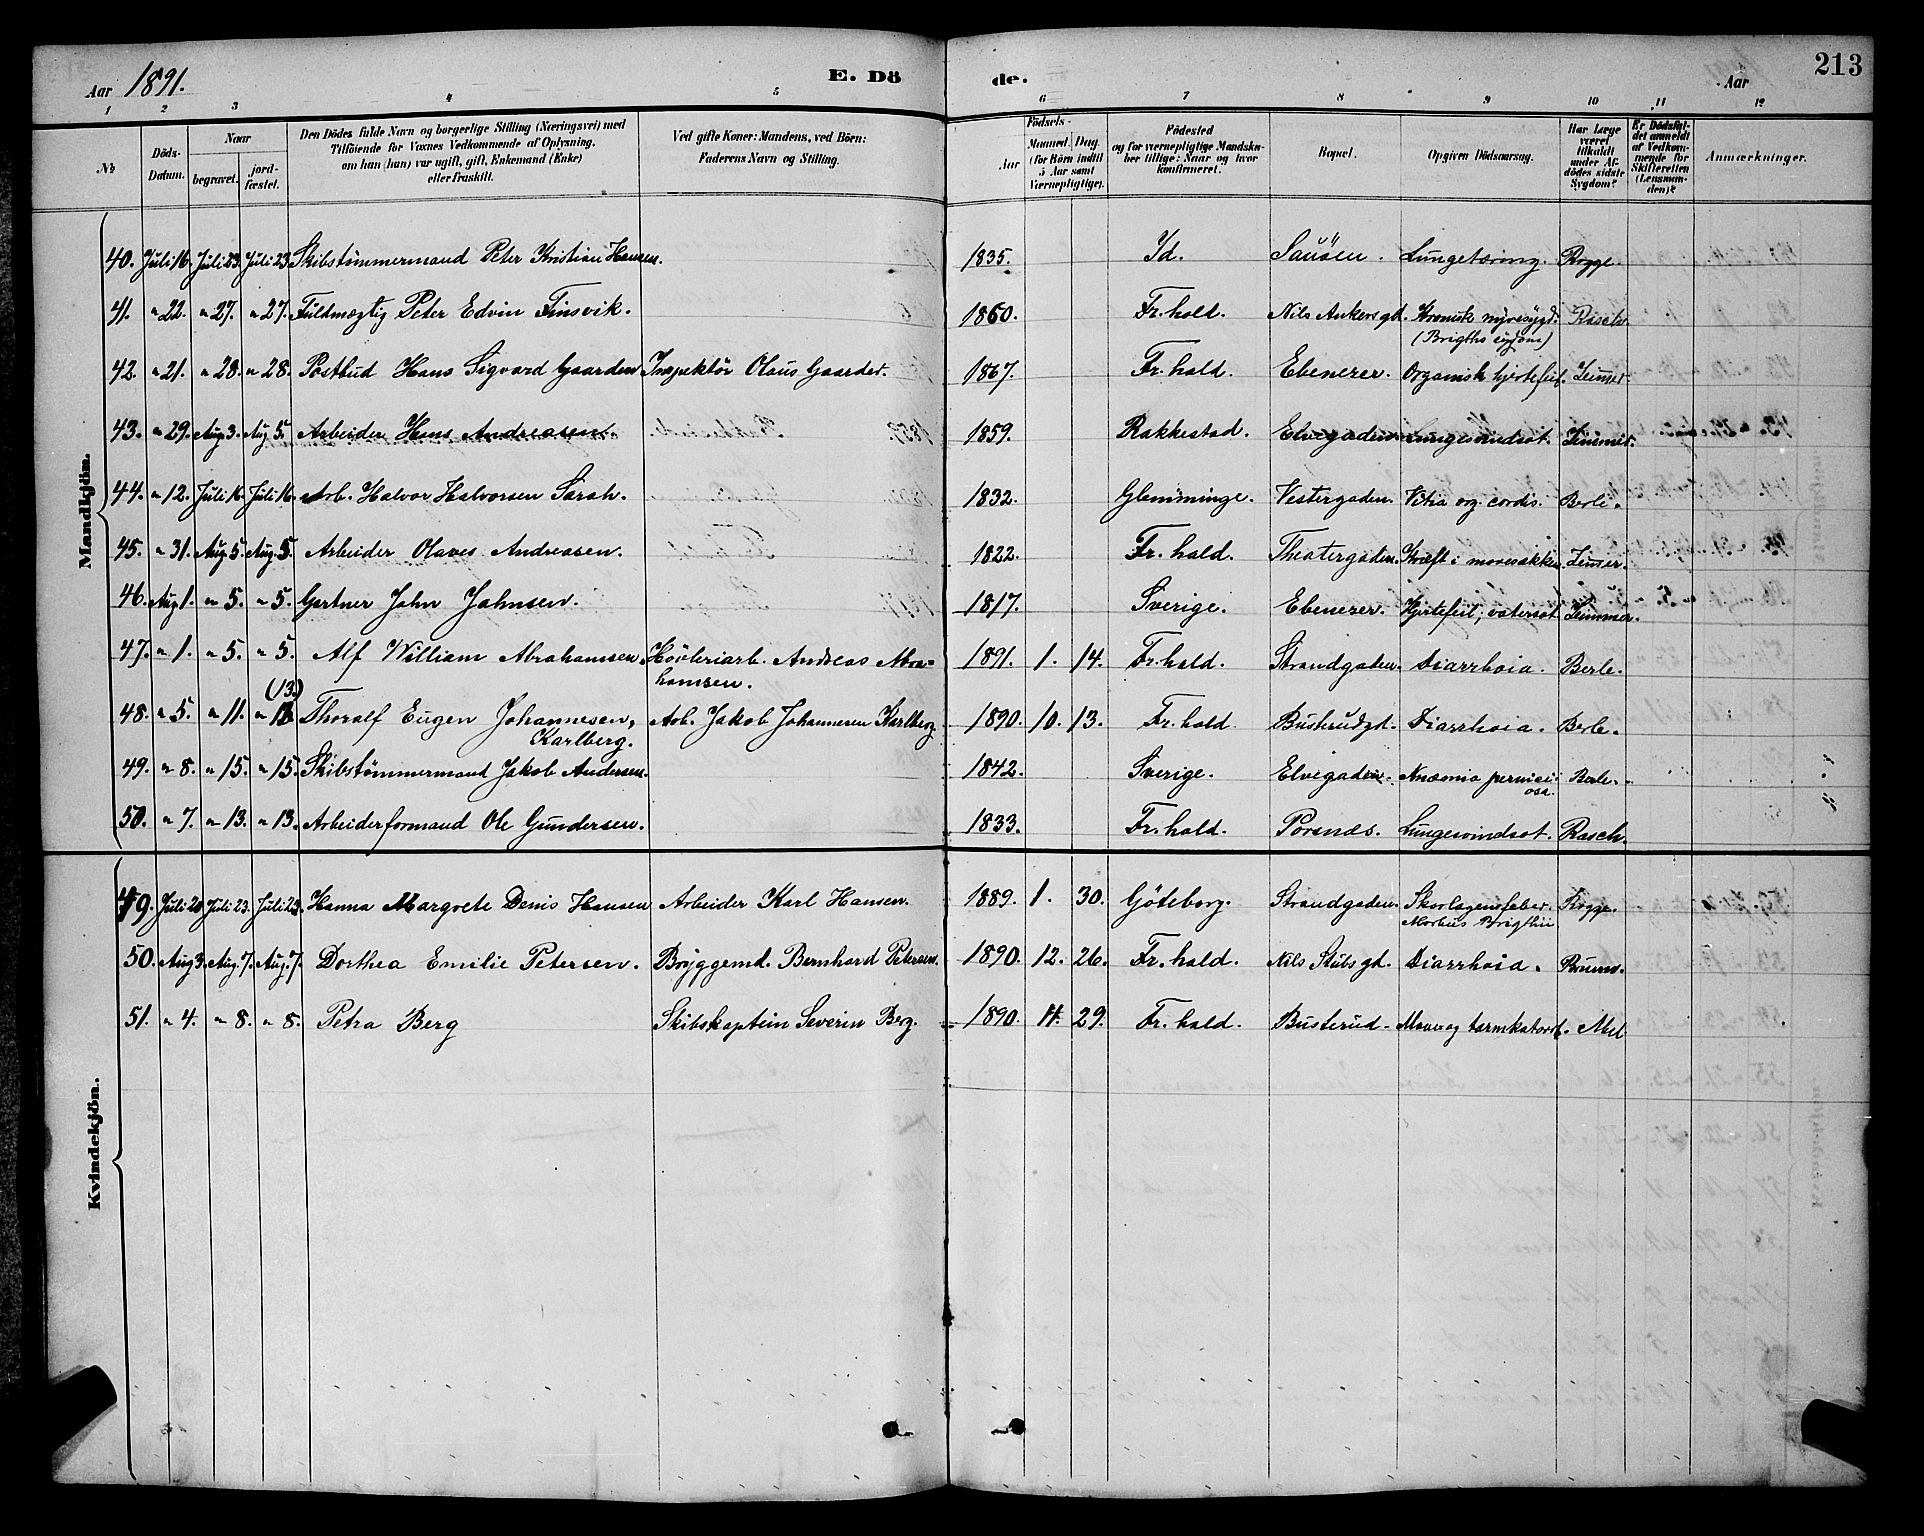 Aar 1891. E. Dö de. Aar 213
1 2 3 4 5 6 7 8 9 10 11 12
No. Döds-Datum. Naar begravet. jord-fæstet. Den Dödes fulde Navn og borgerlige Stilling (Næringsvei) med Tilföiende for Voxnes Vedkommende af Oplysning, om han (hun) var ugift, gift, Enkemand (Enke) eller fraskilt. Ved gifte Koner: Mandens, ved Börn: Faderens Navn og Stilling. Födsels- Aar Maaned. Dag (for Börn indtil 5 Aar samt Værnepligtige). Födested og for værnepligtige Mandskaber tillige: Naar og hvor konfirmeret. Bopæl. Opgiven Dödsaarsag. Har Læge været tilkaldt under Afdödes sidste Sygdom? Er Dödsfaldet anmeldt af Vedkommende for Skifteretten (Lensmanden)? Anmærkninger.
Mandkjön.
40. Juli 16. Juli 23. Juli 23 Skibstømmermand Peter Kristian Hansen. 1835. Id. Sauöen. Lungetæring. Rygge.
41. " 22. " 27. " 27. Fuldmægtig Peter Edvin Finsvik. 1860. Fr.hald. Nils Ankersgd. Kronisk nyresygd. Rasch.
(Brigths sygdom)
42. " 21. " 28. " 28. Postbud Hans Sigvard Gaarder Inspektör Olaus Gaarder. 1867. Fr. hald. Ebenezer. Organisk hjertefeil. Zimmer.
43. " 29. Aug. 3. Aug 5. Arbeider Hans Andreasen. 1859. Rakkestad. Elvegaden. Lungesvindsot. Zimmer.
44. " 12. Juli 16. Juli 16. Arb. Halvor Halvorsen Sarah. 1832. Glemminge. Vestergaden. Vitia org. cordis. Berle.
45. " 31. Aug. 5. Aug. 5. Arbeider Olaves Andreasen. 1822. Fr. hald. Theatergaden. Kræft i mavesækken Zimmer.
46. Aug 1. " 5. " 5. Gartner John Johnsen. 1817. Sverige. Ebenezer. Hjertefeil; vatersot. Zimmer.
47. " 1. " 5. " 5. Alf William Abrahamsen Høvleriarb. Andreas Abra= 1891. 1. 14. Fr. hald. Strandgaden. Diarrhoia. Berle.
hamsen.
(13.)
48. " 5. " 11. " Thoralf Eugen Johannesen, Arb. Jakob Johannesen Karlberg 1890. 10. 13. Fr. hald Busterudgd. Diarrhoia. Berle.
Karlberg.
49. " 8. " 15. " 15. Skibstømmermand Jakob Andersen. 1842. Sverige. Elvegaden. Anæmia pernici= Berle.
osa.
50. " 7. " 13. " 13. Arbeiderformand Ole Gundersen. 1833. Fr. hald. Porsnæs. Lungesvindsot. Rasch.
Kvindekjön.
49. Juli 20 Juli 23. Juli 23. Hanna Margrete Denis Hansen Arbeider Karl Hansen. 1889. 1. 30. Göteborg. Strandgaden. Skarlagensfeber. Rygge.
Morbus Brigthii
50. Aug 3. Aug. 7. Aug. 7. Dorthea Emilie Petersen. Bryggemd. Bernhard Petersen. 1890. 12. 26. Fr. hald. Nils Stubs gd. Diarrhoia.
51. " 4. " 8. " 8. Petra Berg Skibskaptein Severin Berg. 1890. 11. 29. Fr. hald. Busterud. Mave og tarmkatarrh.